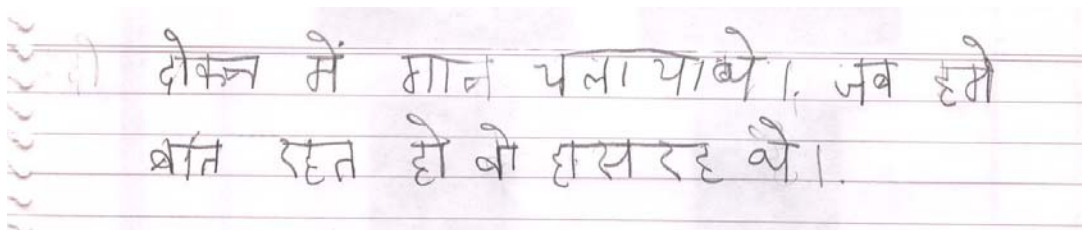 दोकन में गान चला याथे। जब हमे
बात रहत हो वो हास रह थे।